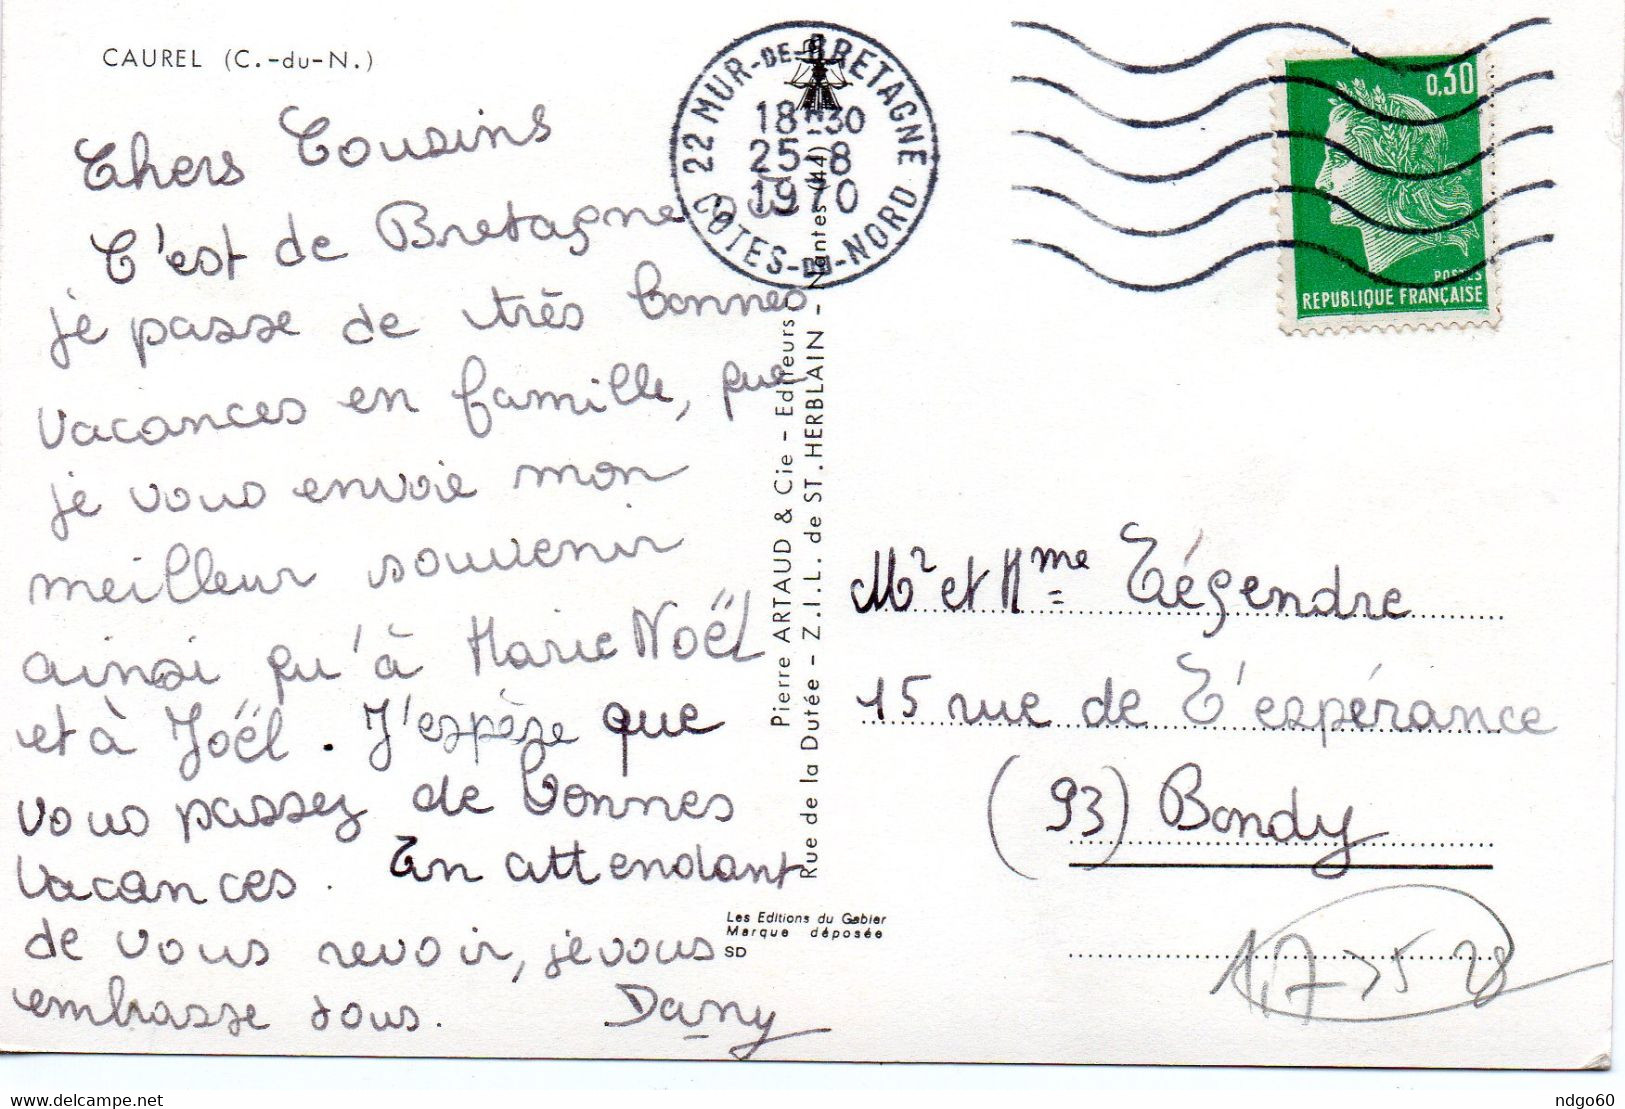 CAUREL (C.-du-N.)
Chers Cousins
C'est de Bretagne où
je passe de très bonnes
vacances en famille, que
je vous envoie mon
meilleur souvenir
ainsi qu'à Marie Noël
et à Joël. J'espère que
vous passez de bonnes
vacances. En attendant
de vous revoir, je vous
embrasse tous. Dany
22 MUR-DE-BRETAGNE
18H30
25-8
1970
COTES-DU-NORD
Pierre ARTAUD & Cie - Editeurs
Rue de la Dutée - Z.I.L. de ST. HERBLAIN - Nantes (44)
Les Editions du Gabier
Marque déposée
SD
0,30
POSTES
REPUBLIQUE FRANÇAISE
Mr et Mme Légendre
15 rue de L'espérance
(93) Bondy
ndgo60